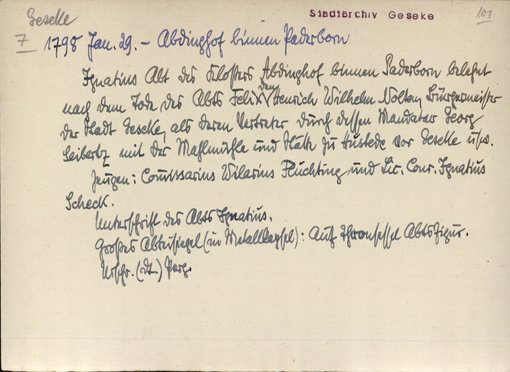 Geseke
Stadtarchiv Geseke
101
7
1798 Jan. 29. - Abdinghof binnen Paderborn
Ignatius Abt des Klosters Abdinghof binnen Paderborn belehnt
nach dem Tode des Abts Felix den Henrich Wilhelm Nolten Bürgermeister
der Stadt Geseke, als deren Vertreter durch dessen Mandatar Georg
Seibertz mit der Mahlmühle und Stätte zu Hüstede vor Geseke usw.
Zeugen: Comissarius Hilarius Flüchting und Lic. Conr. Ignatius
Scheck.
Unterschrift des Abts Ignatius.
Großes Abteisiegel (in Metallkapsel): Auf Thronsessel Abtsfigur.
Urschr. (dt.) Perg.